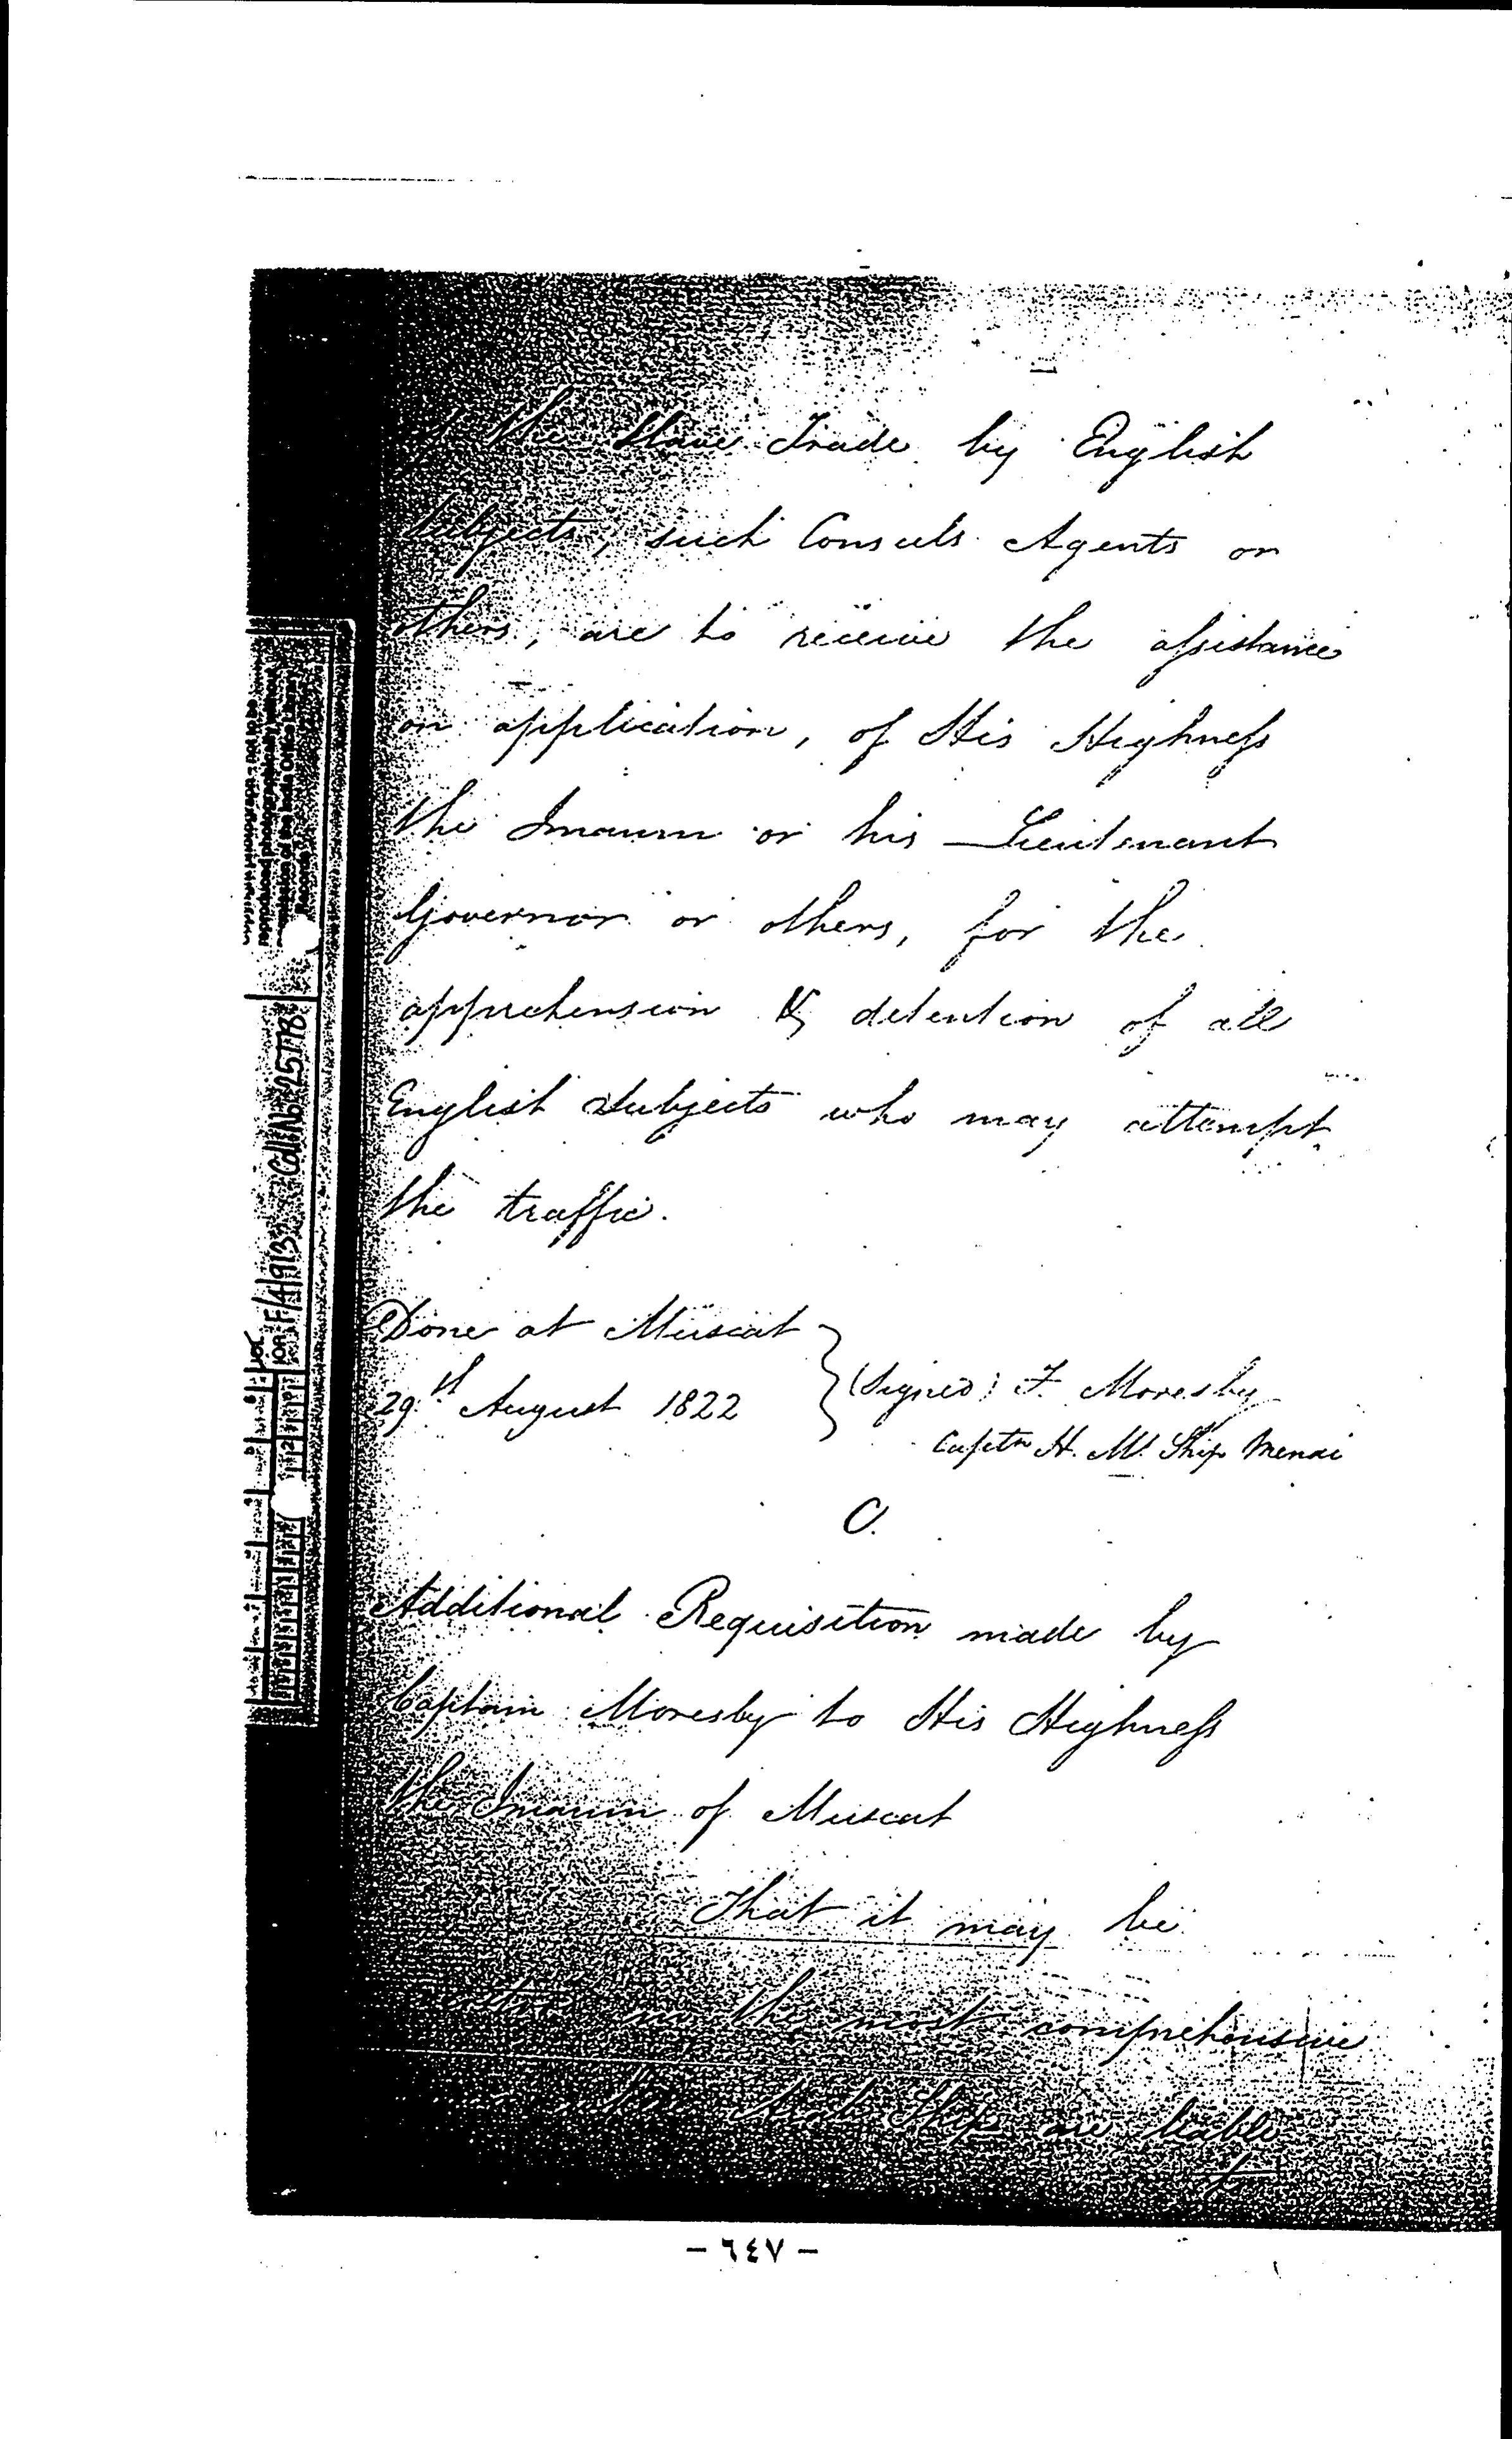 the Slave Trade by English
Subjects, such Consuls Agents or
others, are to receive the assistance
on application, of His Highness
the Imaum or his Lieutenant
Governor or others, for the
apprehension & detention of all
English Subjects who may attempt
the traffic.
Done at Muscat
29th August 1822
(Signed) F. Moresby
Captn H. M. Ship Menai
C.
Additional Requisition made by
Captain Moresby to His Highness
the Imaum of Muscat
That it may be
in the most comprehensive
Ships are liable
reproduced photographically without
mission of the India Office Library
Records
IOR F/4/913
- ٦٤٧ -